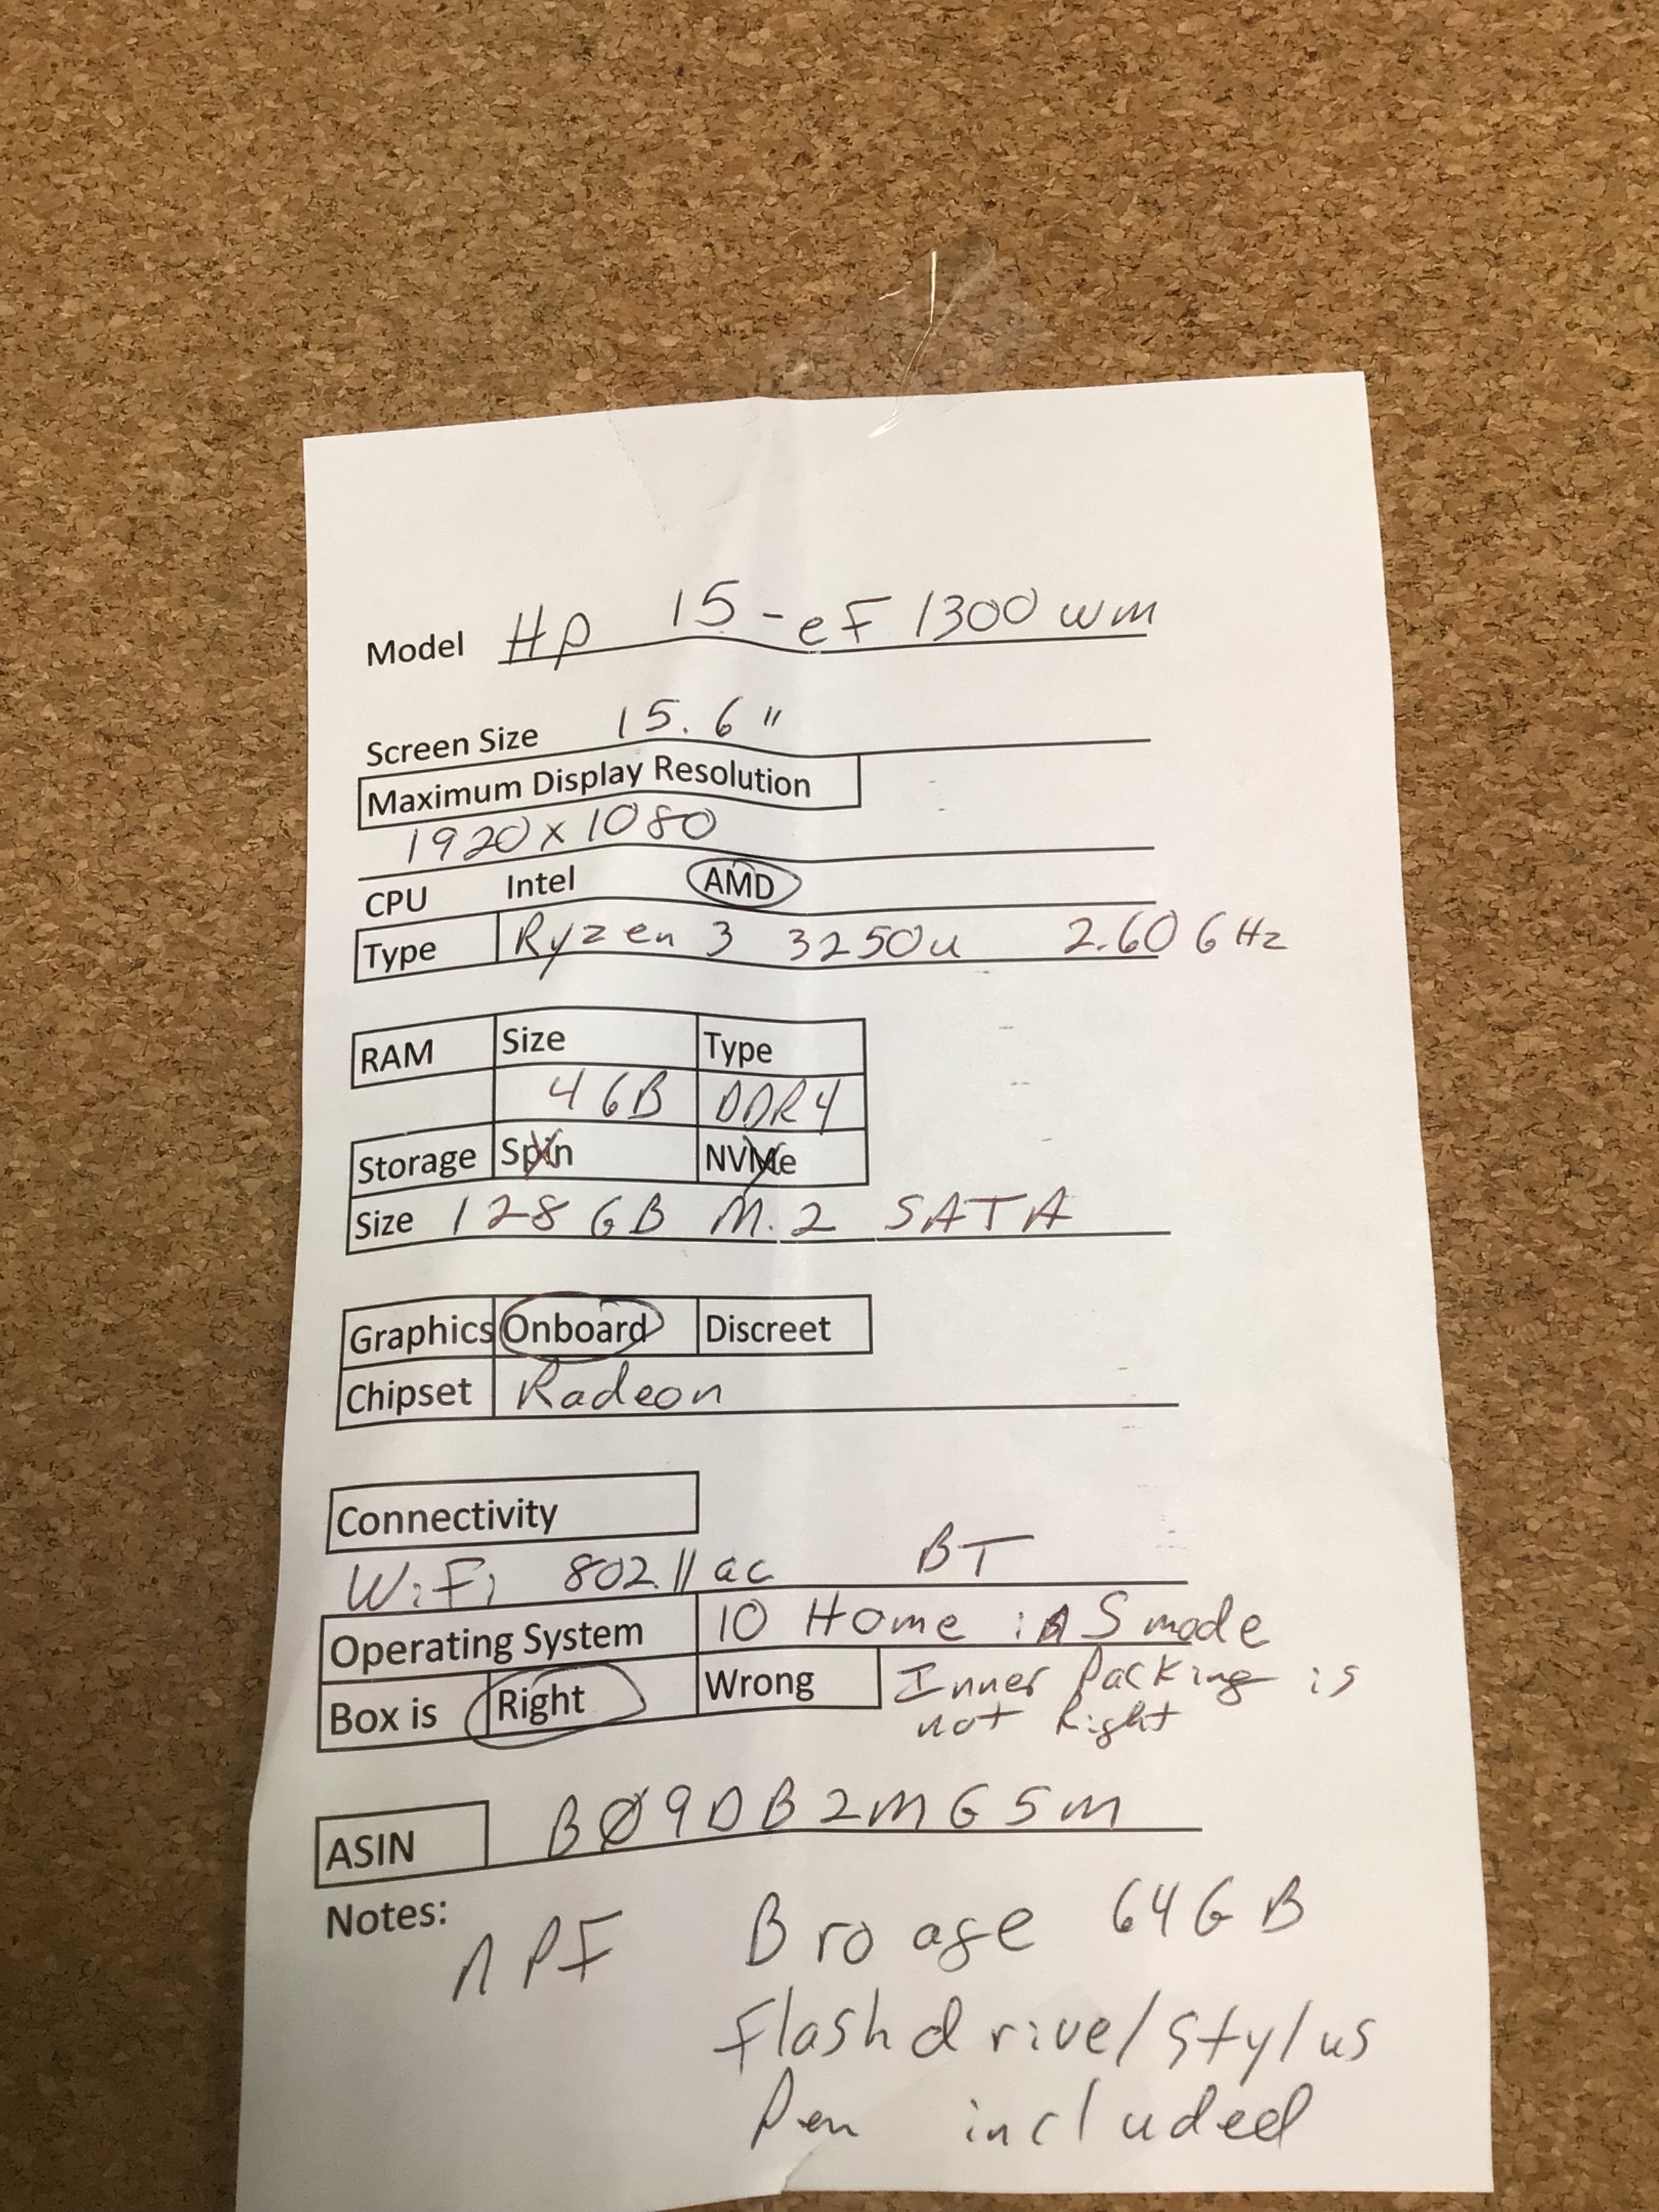 Model Hp 15-eF1300wm
Screen Size 15.6"
Maximum Display Resolution
1920x1080
CPU Intel AMD
Type Ryzen 3 3250u 2.60 GHz
RAM Size Type
4 GB DDR4
Storage Spin NVMe
Size 128 GB M.2 SATA
Graphics Onboard Discreet
Chipset Radeon
Connectivity
WiFi 802.11 ac BT
Operating System 10 Home in S mode
Box is Right Wrong Inner Packing is
not Right
ASIN BØ9DB2MG5M
Notes:
NPF Broage 64GB
Flashdrive/Stylus
Pen included